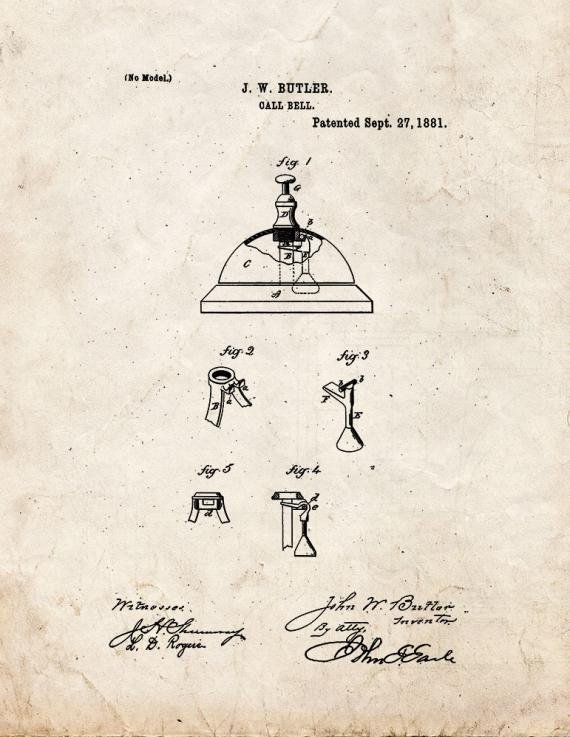 (No Model.)
J. W. BUTLER.
CALL BELL.
Patented Sept. 27, 1881.
fig. 1
G
D
b
a
B
E
C
A
fig. 2
fig. 3
B
a
a
F
b
b
E
fig. 5
fig. 4
d
d
e
Witnesses.
L. D. Rogers.
John W. Butler
Inventor
By atty.
John E. Earle